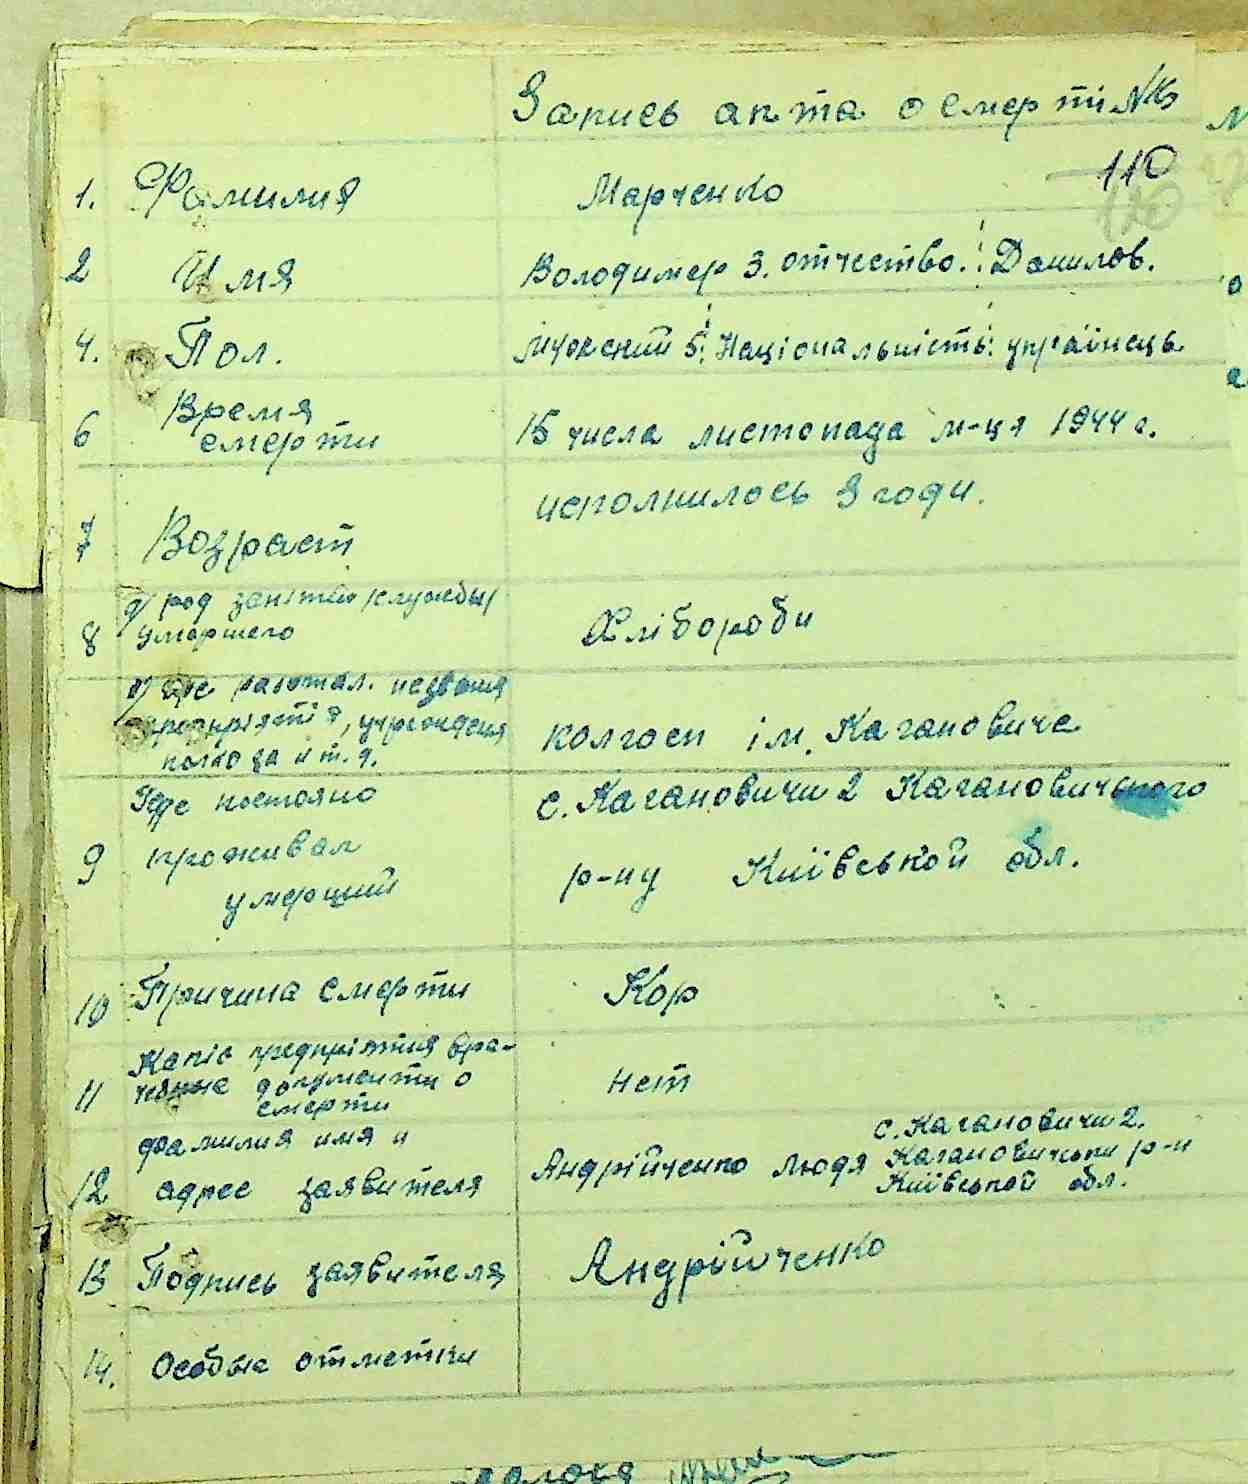 Запись акта о смерті №
110
1. Фамилия Марченко
2 Имя Володимер 3. отчество. Данилов.
4. Пол. Мужский 5. Національність: українець
6 Время смерти 15 числа листопада м-ця 1944 г.
исполнилось 3 годи.
7 Возраст
8 а/ род занятий /службы/
умершего Хлібороби
где работал. названия
предприятія, учреждения
колхоза и т.д. колгосп ім. Кагановича
Где постояно с. Кагановичи 2 Кагановичского
9 проживал
умерший р-ну Київськой обл.
10 Причина смерти Кор
предприятия вра-
11 чебные документи о
смерти нет
фамилия имя и с. Кагановичи 2.
12 адрес заявителя Андрійченко Людя Кагановичськи р-н
Київської обл.
13 Подпись заявителя Андрійченко
14. Особые отметки